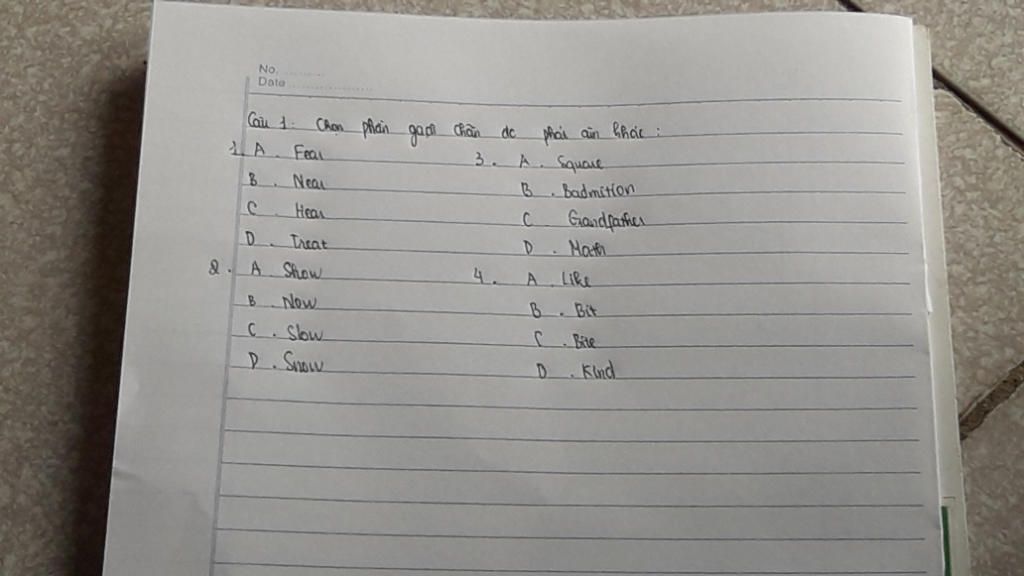 No. ............
Date ......................
Câu 1: Chọn phần gạch chân dc phát âm khác :
1. A. Fear
B. Near
C. Hear
D. Treat
2. A Show
B. Now
C. Slow
D. Snow
3. A. Square
B. Badmition
C Grandfather
D. Math
4. A. Like
B. Bit
C. Bite
D. Kind